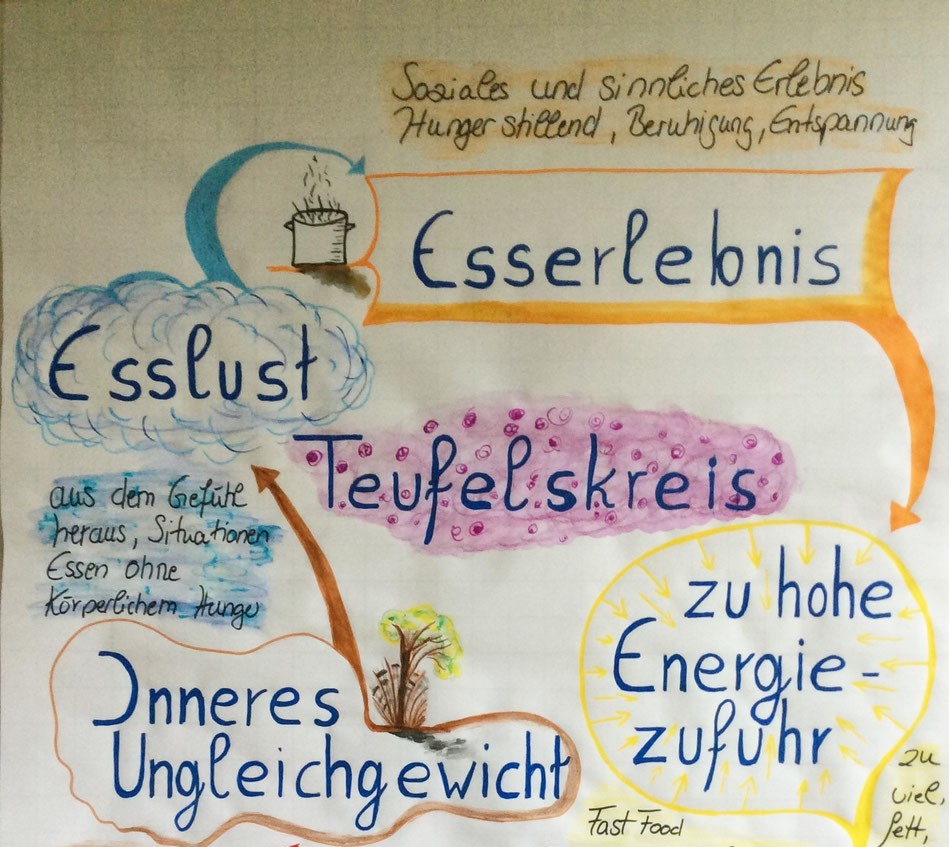 Soziales und sinnliches Erlebnis
Hunger stillend, Beruhigung, Entspannung
Esserlebnis
Esslust
Teufelskreis
aus dem Gefühl
heraus, Situationen
Essen ohne
Körperlichem Hunger
zu hohe
Energie-
zufuhr
Inneres
Ungleichgewicht
zu
viel,
fett,
Fast Food